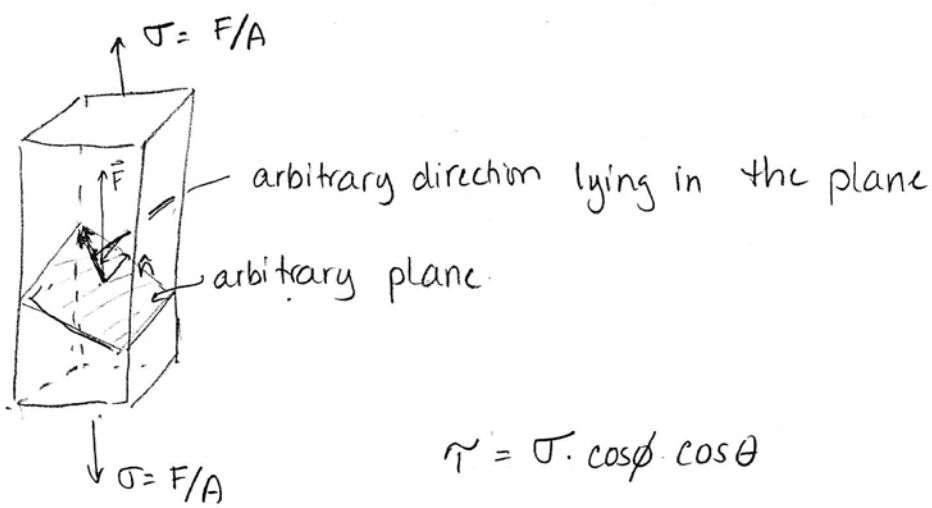 σ = F/A
F⃗
arbitrary direction lying in the plane
n̂
arbitrary plane.
σ = F/A
τ = σ · cosϕ · cosθ